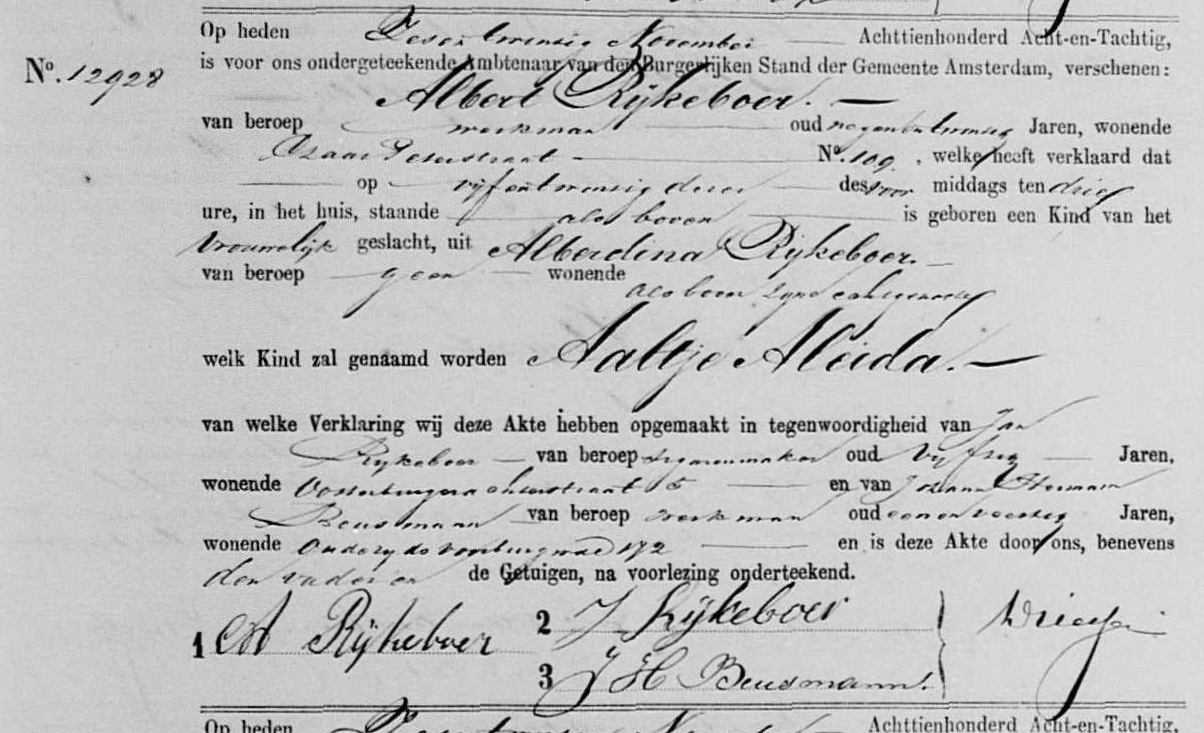 Op heden Zesentwintig November Achttienhonderd Acht-en-Tachtig,
No. 12928
is voor ons ondergeteekende Ambtenaar van den Burgerlijken Stand der Gemeente Amsterdam, verschenen:
Albert Rijkeboer. —
van beroep — werkman — oud negenentwintig Jaren, wonende
Czaar Peterstraat — No. 109, welke heeft verklaard dat
— op — vijfentwintig dezer — des nm. middags ten drie
ure, in het huis, staande als boven — is geboren een Kind van het
Vrouwelijk geslacht, uit Alberdina Rijkeboer. —
van beroep — geen — wonende
als boven zijne echtgenoote
welk Kind zal genaamd worden Aaltje Aleida. —
van welke Verklaring wij deze Akte hebben opgemaakt in tegenwoordigheid van Jan
Rijkeboer — van beroep sigarenmaker oud Vijftig — Jaren,
wonende 5 — en van Johann Hermann
Beusmann van beroep werkman oud eenenveertig Jaren,
wonende 172 — en is deze Akte door ons, benevens
den vader en de Getuigen, na voorlezing onderteekend.
1 A Rijkeboer 2 J Rijkeboer
3 J H Beusmann.
Op heden Achttienhonderd Acht-en-Tachtig,